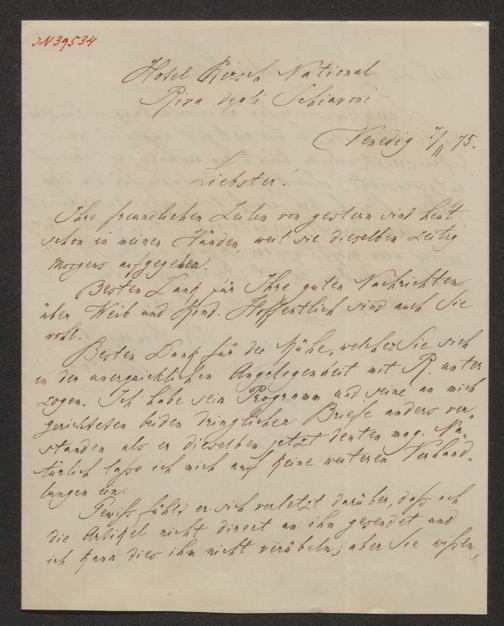 IN 39534
Hotel Kirsch National
Riva degli Schiavoni
Venedig 7/11 75.
Liebster!
Ihre freundlichen Zeilen von gestern sind heut
schon in meinen Händen, weil sie dieselben zeitig
Morgens aufgegeben.
Besten Dank für Ihre guten Nachrichten
über Weib und Kind. Hoffentlich sind auch Sie
wohl.
Besten Dank für die Mühe, welcher Sie sich
in der unerquicklichen Angelegenheit mit R. unter
zogen. Ich habe sein Programm und seine an mich
gerichteten beiden dringlichen Briefe anders ver-
standen als er dieselben jetzt deuten mag. Na-
türlich lasse ich mich auf keine weiteren Verhand-
lungen ein.
Gewiß fühlt er sich verletzt darüber, daß ich
die Artikel nicht direct an ihn gesendet und
ich kann dies ihm nicht verübeln; aber Sie wißen,